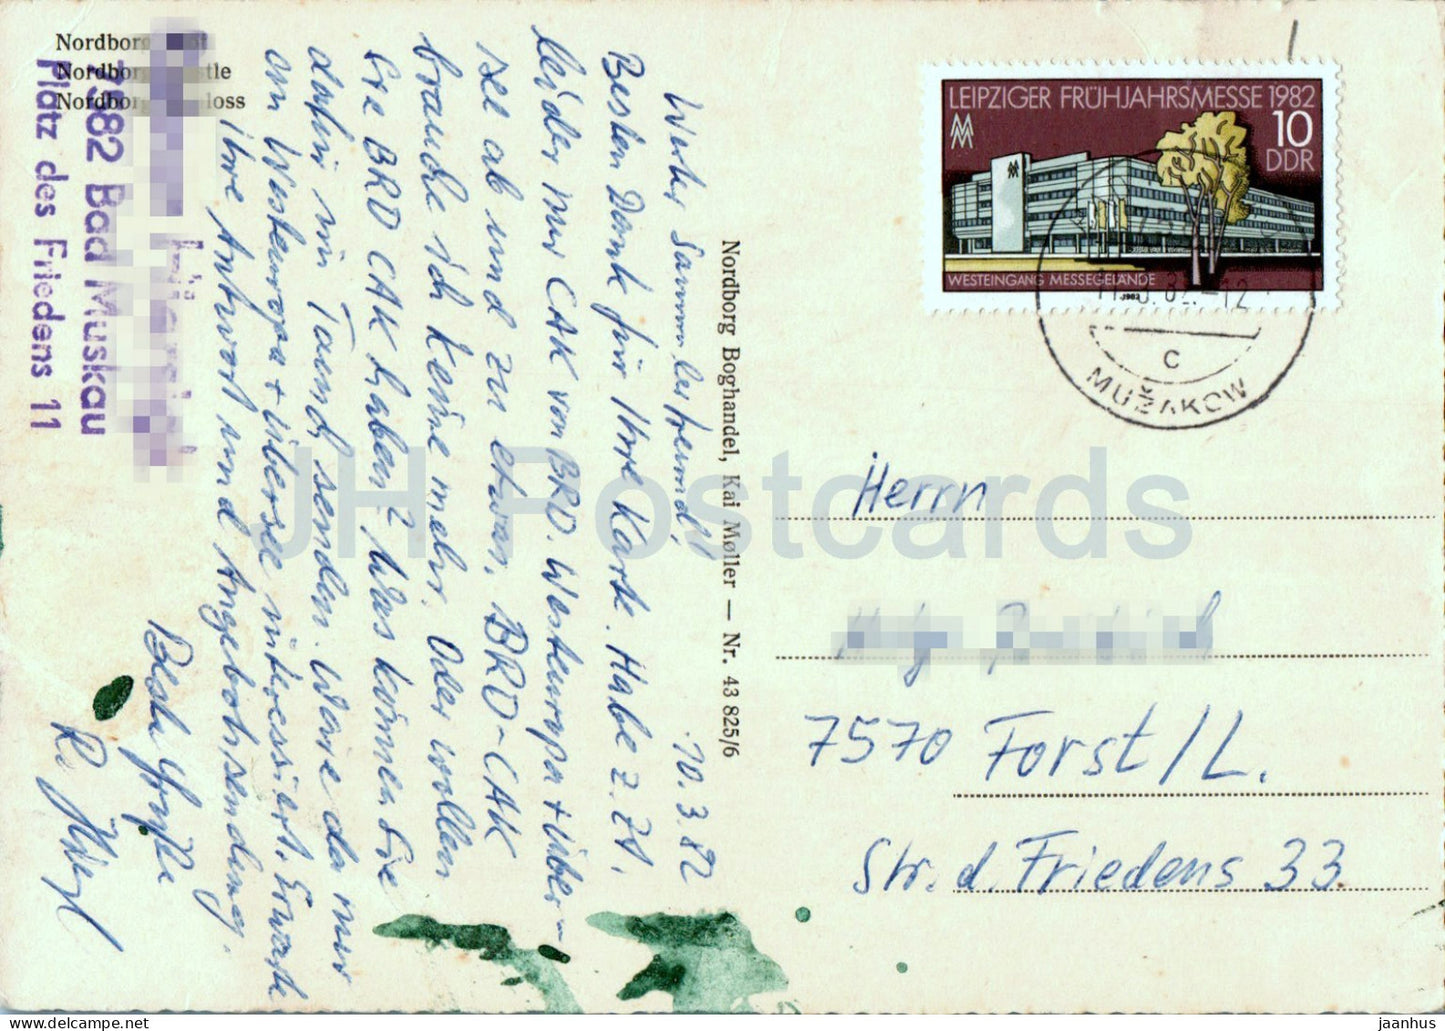 Nordborg
Nordborg
Nordborg
7582 Bad Muskau
Platz des Friedens 11
10.3.82
Werter Sammlerfreund!
Besten Dank für Ihre Karte. Habe z. Zt.
leider nur CAK von BRD. Westeuropa + Über-
see ab und zu etwas. BRD-CAK
brauche ich keine mehr. Oder wollen
Sie BRD CAK haben? Was können Sie
dafür im Tausch senden. Wäre da nur
an Westeuropa + Übersee interessiert. Erwarte
Ihre Antwort und Angebotssendung.
Beste Grüße
Nordborg Boghandel, Kai Møller — Nr. 43 825/6
LEIPZIGER FRÜHJAHRSMESSE 1982
10
DDR
WESTEINGANG MESSEGELÄNDE
1982
-12
C
MUŽAKOW
Herrn
7570 Forst/L.
Str. d. Friedens 33
JH Postcards
jaanhus www.delcampe.net